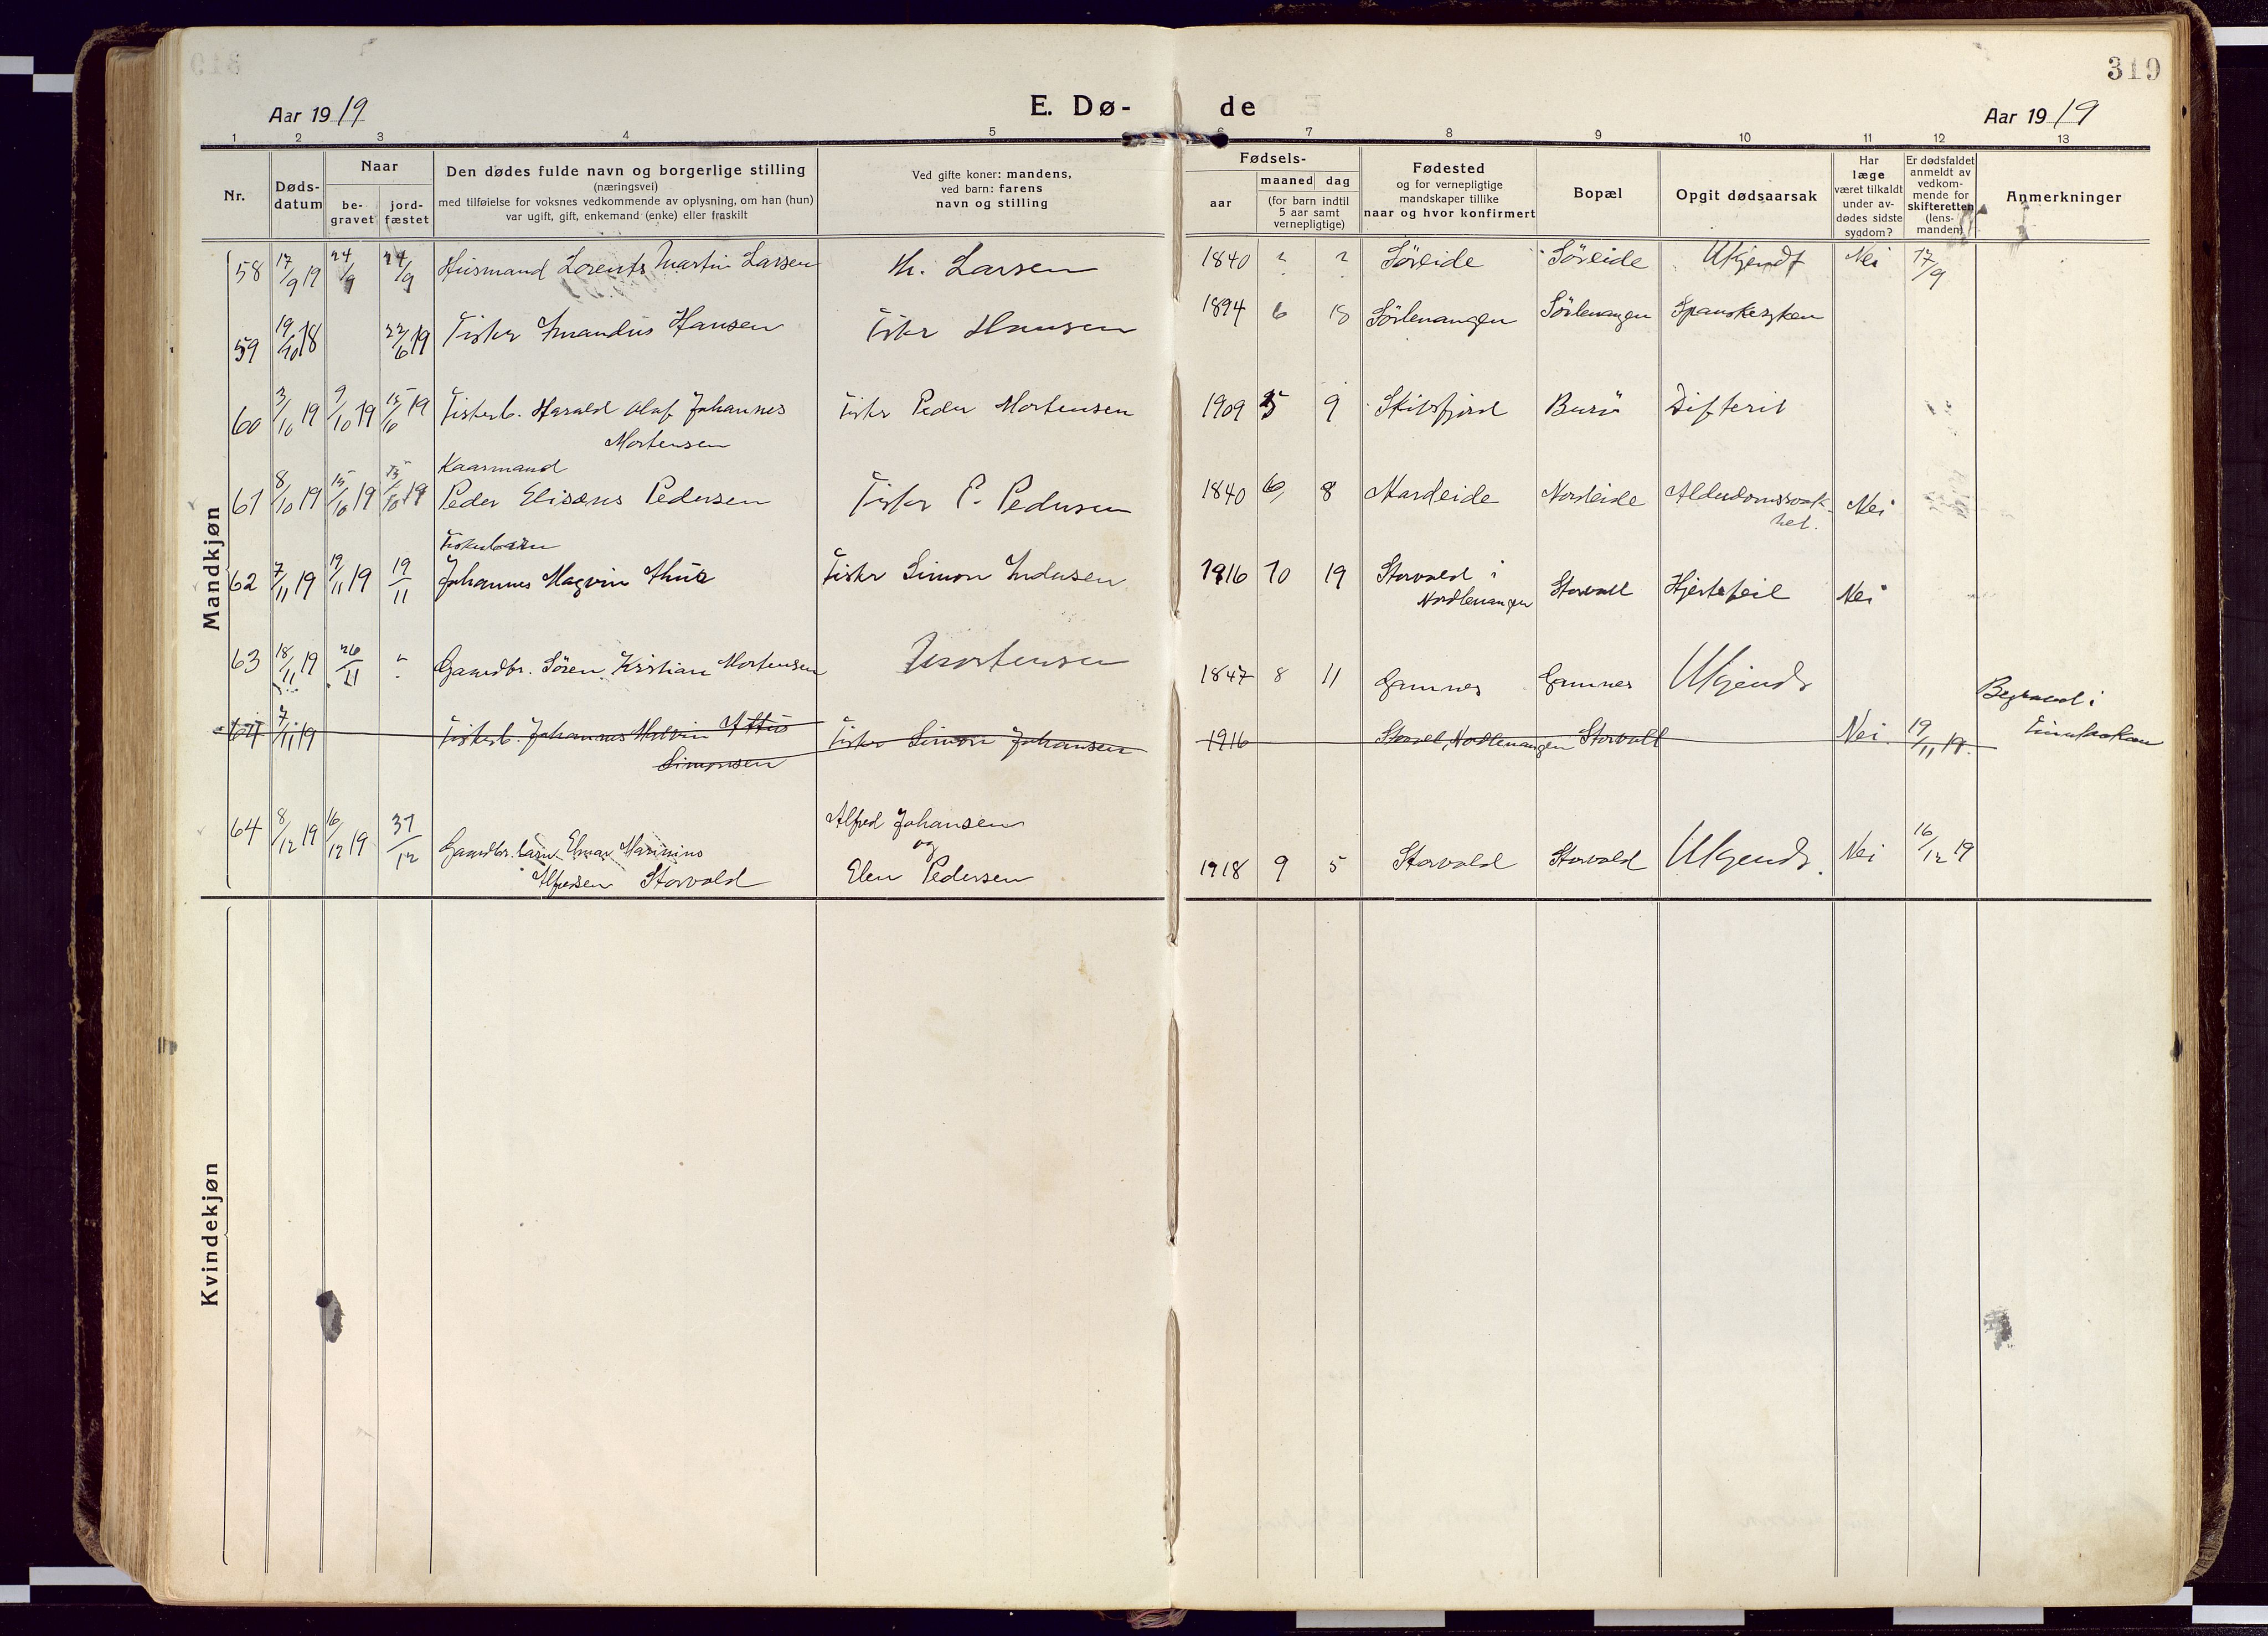 319
Aar 1919
E. Dø-
de
Aar 1919
1 2 3 4 5 6 7 8 9 10 11 12 13
Nr.
Døds-
datum
Naar
be-
gravet
jord-
fæstet
Den dødes fulde navn og borgerlige stilling
(næringsvei)
med tilføielse for voksnes vedkommende av oplysning, om han (hun)
var ugift, gift, enkemand (enke) eller fraskilt
Ved gifte koner: mandens,
ved barn: farens
navn og stilling
Fødsels-
aar
maaned dag
(for barn indtil
5 aar samt
vernepligtige)
Fødested
og for vernepligtige
mandskaper tillike
naar og hvor konfirmert
Bopæl
Opgit dødsaarsak
Har
læge
været tilkaldt
under av-
dødes sidste
sygdom?
Er dødsfaldet
anmeldt av
vedkom-
mende for
skifteretten
(lens-
manden)
Anmerkninger
Mandkjøn
58 17/9 19 24/9 24/9 Husmand Lorents Martin Larsen M. Larsen 1840 ? ? Søreide Søreide Ukjendt Nei 17/9
59 19/10 18 22/6 19 Fisker Amandus Hansen Fisker Hansen 1894 6 18 Sørlenangen Sørlenangen Spanskesyken
60 3/10 19 9/10 19 15/10 19 Fiskerb. Harald Olaf Johannes Fisker Peder Mortensen 1909 5 9 Skitsfjord Burø Difterit
Mortensen
Kaarmand
61 8/10 19 15/10 19 15/10 19 Peder Elisæus Pedersen Fisker P. Pedersen 1840 6 8 Nordeide Nordeide Alderdomssvak-
het. Nei
Fiskerbarn
62 7/11 19 19/11 19 19/11 Johannes Magvin Fisker Simon 1916 10 19 Storvold i
Nordlenangen Storvoll Hjertefeil Nei
63 18/11 19 26/11 " Gaardbr. Søren Kristian Mortensen Mortensen 1847 8 11 Gamnes Gamnes Ukjendt
Begravet i
64 7/11 19 Fiskerb. Johannes Malvin Fisker Simon Johansen 1916 Storvol, Nordlenangen Storvoll Nei. 19/11 19.
Simonsen
64 8/12 19 16/12 19 31/12 Gaardbr. barn Elmar Marinius
Alfredsen Storvold
Alfred Johansen
og
Elen Pedersen
1918 9 5 Storvold Storvold Ukjendt. Nei 16/12 19
Kvindekjøn